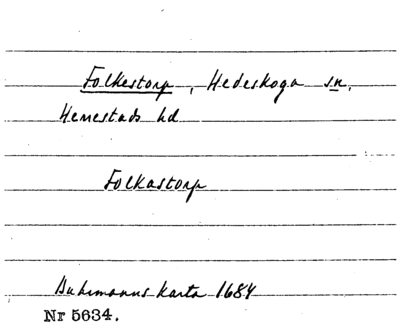 Folkestorp, Hedeskoga sn,
Herrestads hd
Folkastorp
Buhrmanns karta 1684
Nr 5634.